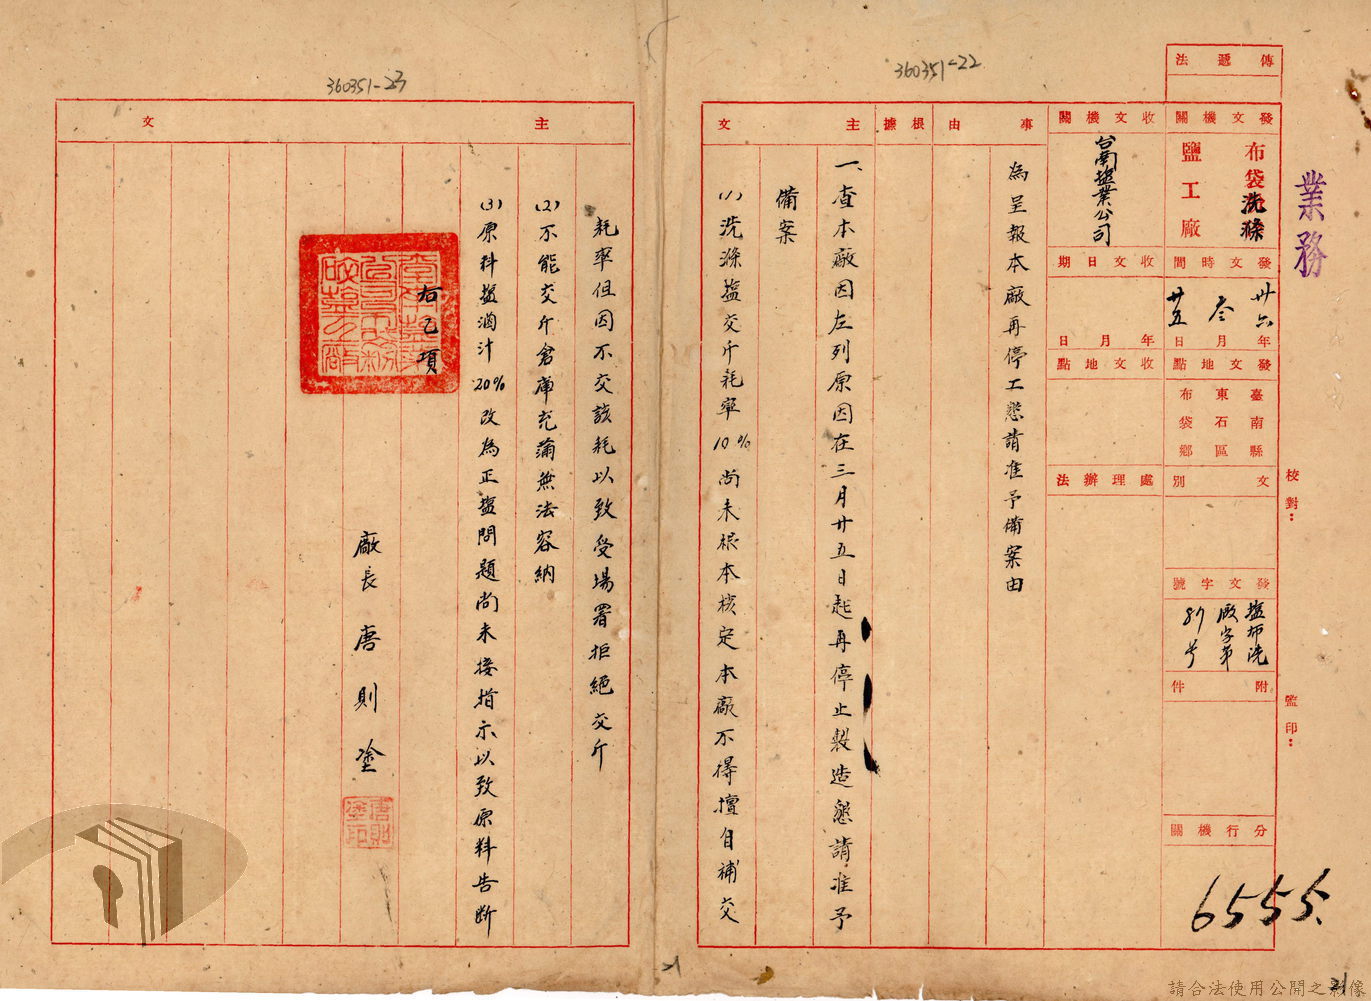 360351-23
360351-22
業務
校對：
監印：
傳遞法
發文機關
布袋洗滌
鹽工廠
發文時間
卅六年
叁月
廿五日
發文地點
臺南縣
東石區
布袋鄉
文別
發文字號
塩布洗
廠字第
81号
附件
分行機關
6555.
收文機關
台南塩業公司
收文日期
年月日
收文地點
處理辦法
事由
為呈報本廠再停工懇請准予備案由
根據
主文
一、查本廠因左列原因在三月廿五日起再停止製造懇請准予
備案
(1)洗滌塩交斤耗率10%尚未根本核定本廠不得擅自補交
主文
耗率但因不交該耗以致受場署拒絕交斤
(2)不能交斤倉庫充蒲無法容納
(3)原料塩滷汁20%改為正塩問題尚未接指示以致原料告斷
右乙項
廠長 唐則塗
唐則塗印
21
21
請合法使用公開之影像